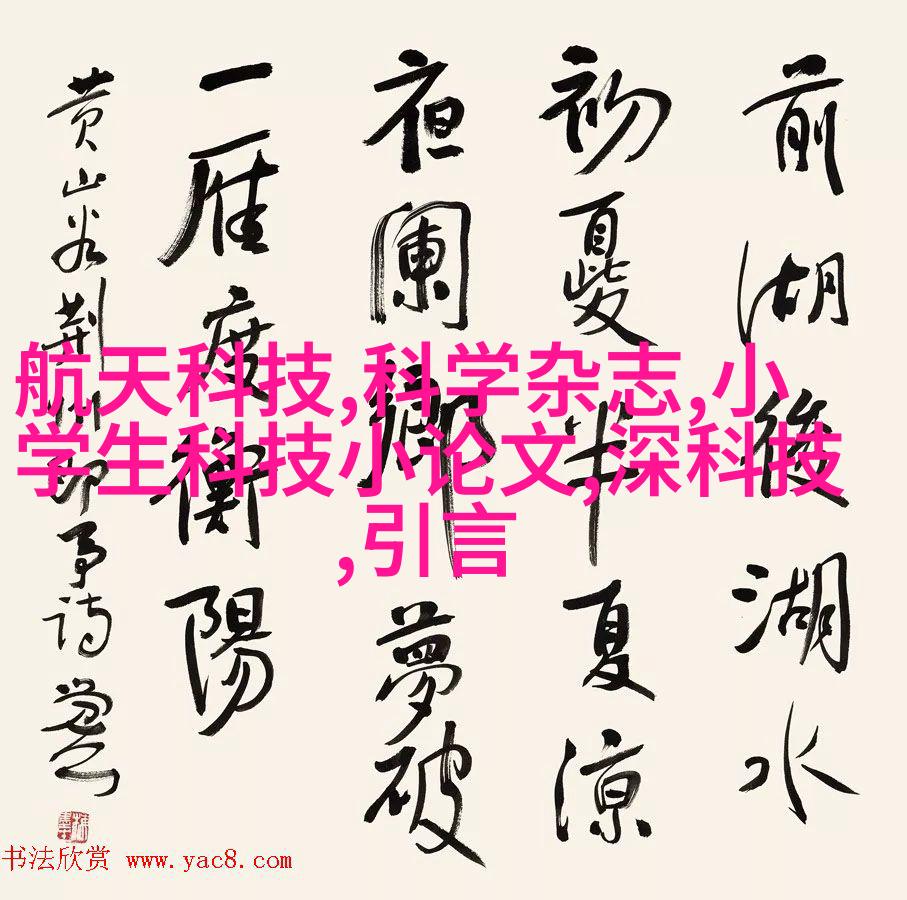 前湖後湖水
初夏半夏涼
夜闌鄉夢破
一雁度衡陽
黄山谷荆州即事詩
航天科技,科学杂志,小
学生科技小论文,深科技
,引言
书法欣赏 www.yac8.com